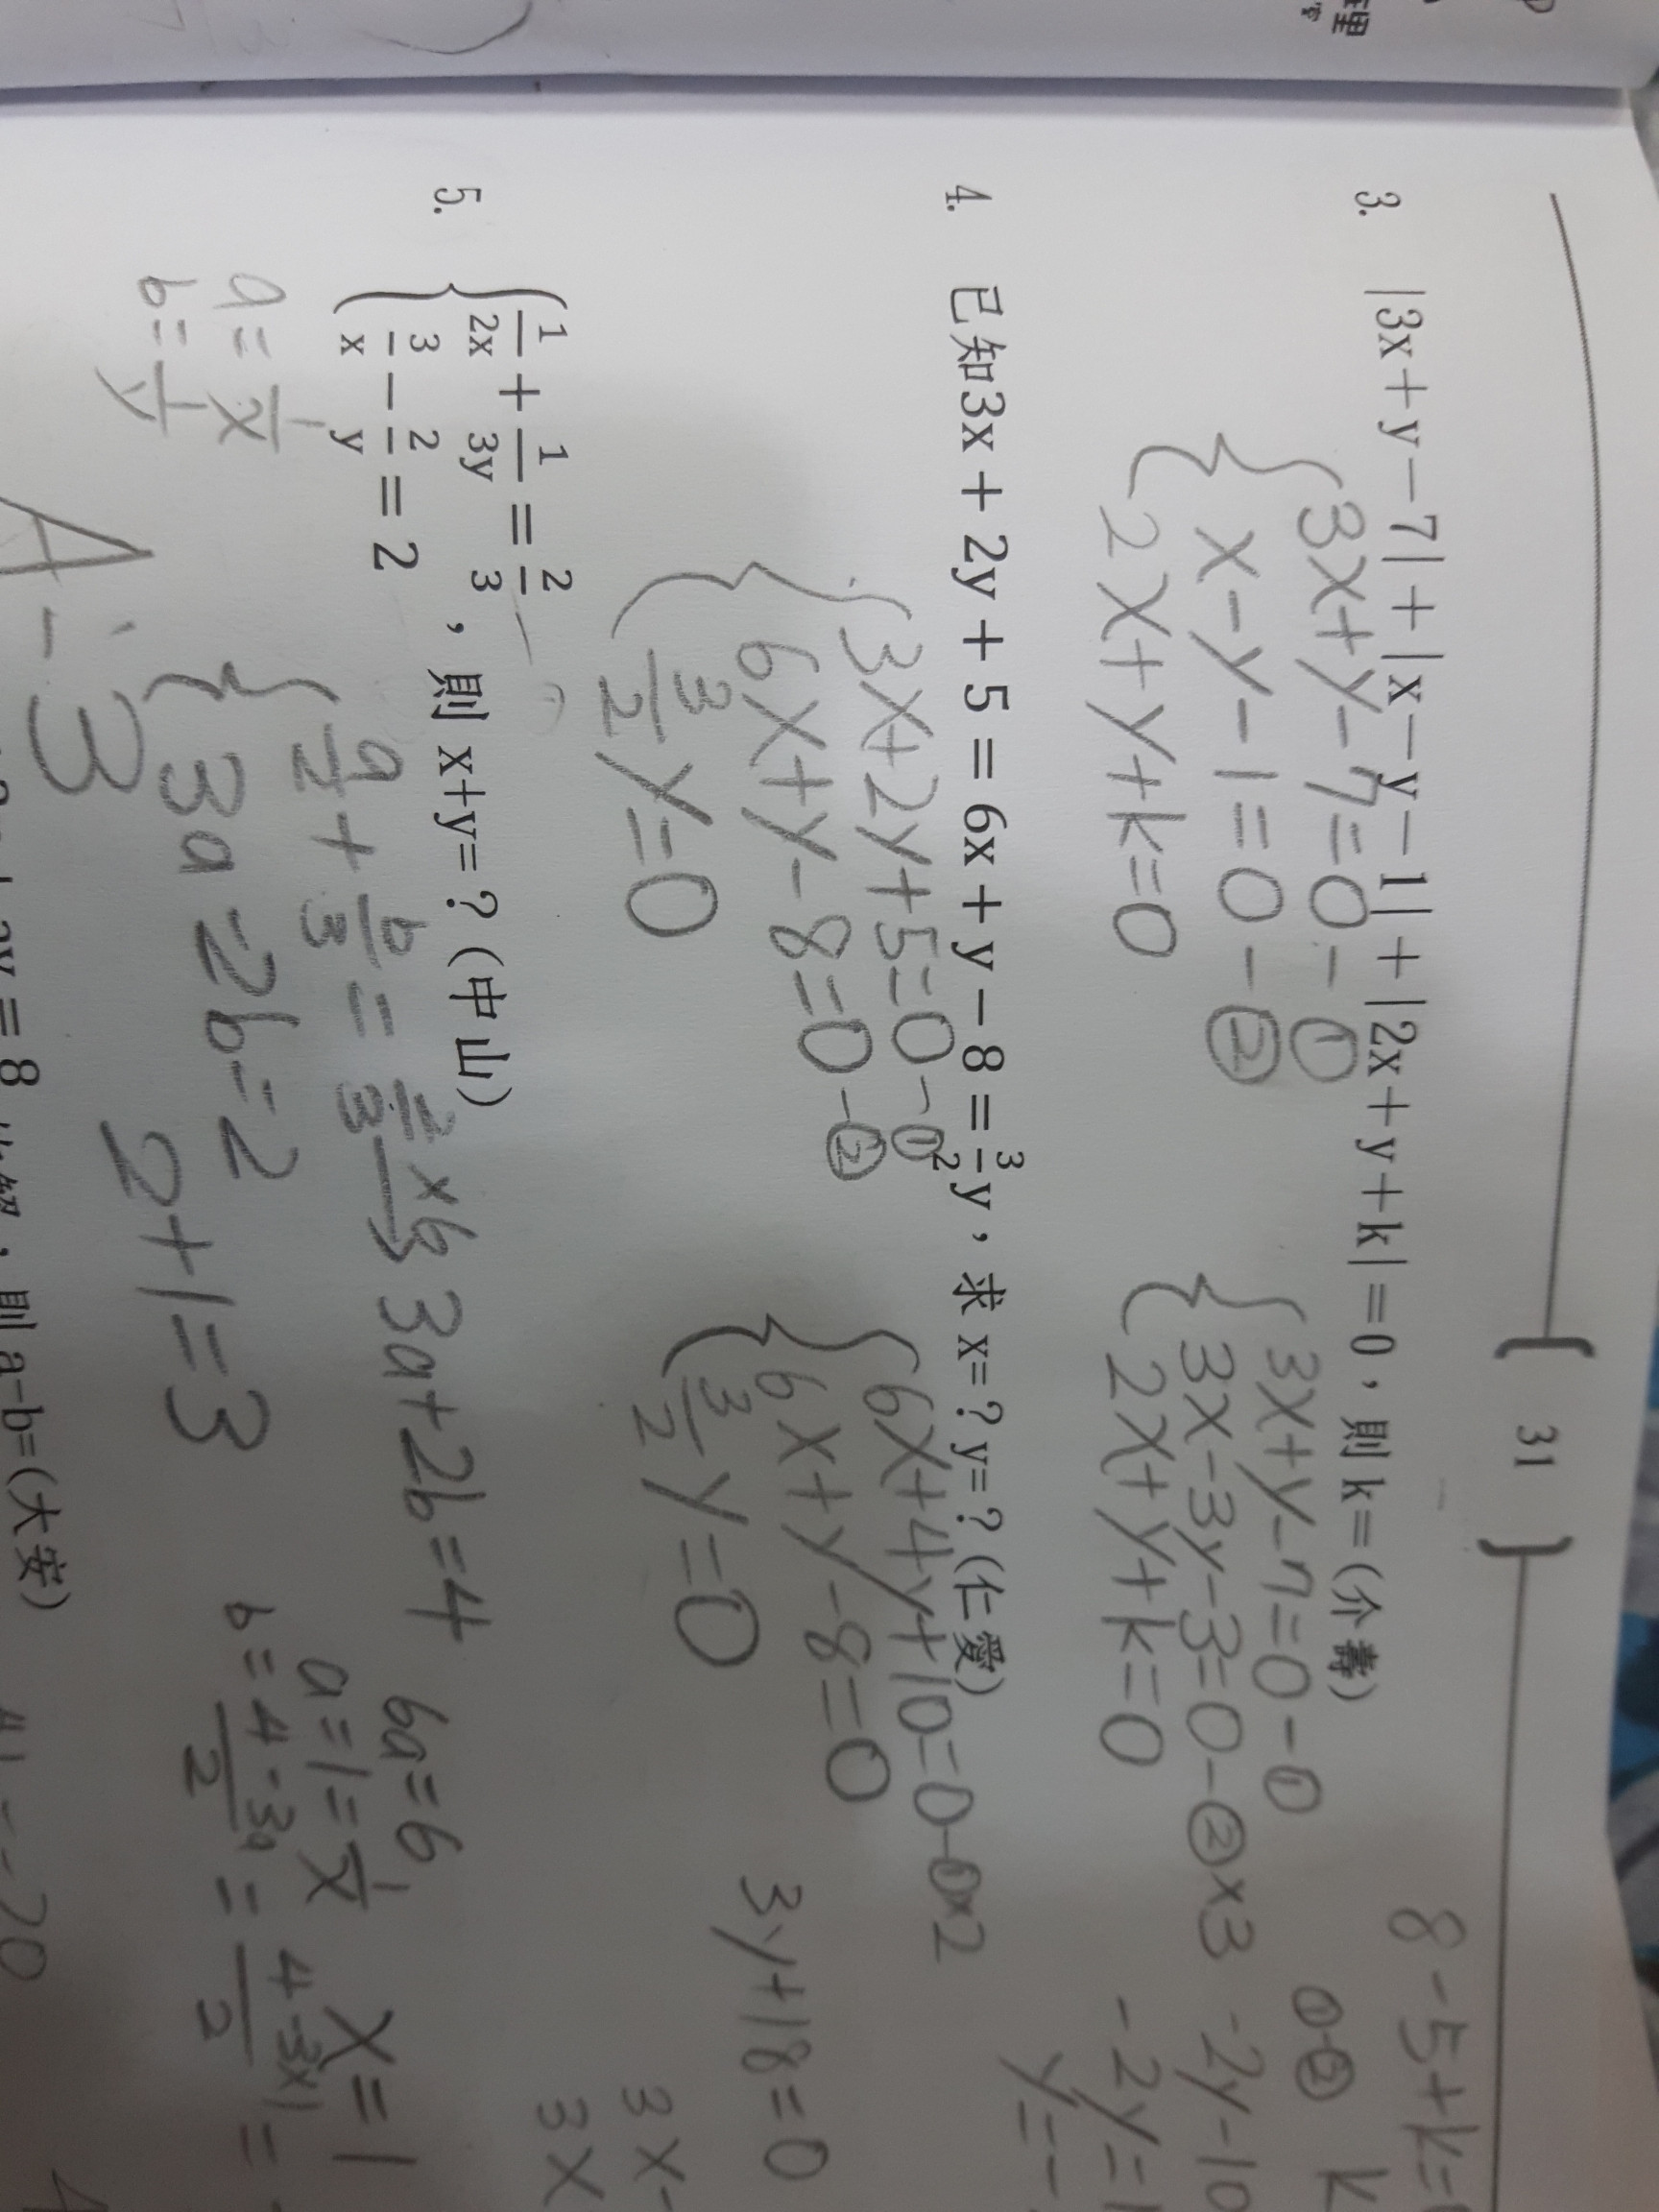 31
3. |3x+y-7|+|x-y-1|+|2x+y+k|=0，則k=(介壽)
{3x+y-7=0-①
x-y-1=0-②
2x+y+k=0
{3x+y-7=0-①
3x-3y-3=0-②×3
2x+y+k=0
8-5+k=
①-②
-2y-10
-2y=1
y=-
k
4. 已知3x+2y+5=6x+y-8=3/2y，求x=？y=？(仁愛)
{3x+2y+5=0-①
6x+y-8=0-②
3/2y=0
{6x+4y+10=0-①×2
6x+y-8=0
3/2y=0
3y+18=0
3x-
3x
5. {1/2x+1/3y=2/3
3/x-2/y=2，則x+y=？(中山)
a=1/x
b=1/y
{a/2+b/3=2/3×6 3a+2b=4
3a-2b=2
2+1=3
A:3
6a=6
a=1=1/x
x=1
b=4-3a/2=4-3×1/2=
=8
則a-b=(大安)